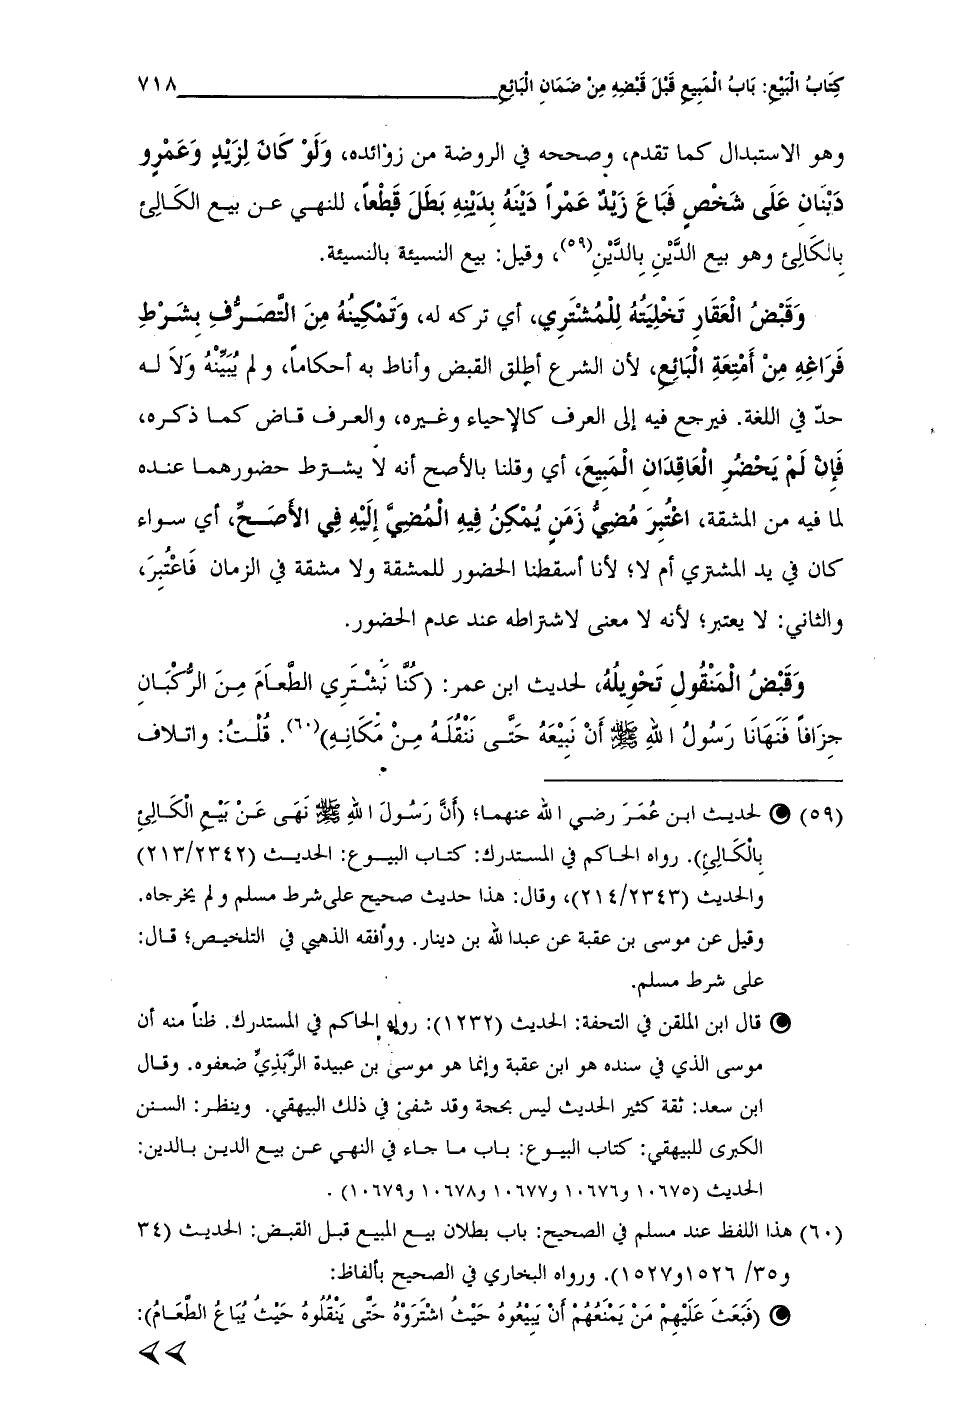 كِتَابُ الْبَيْعِ: بَابُ الْمَبِيعِ قَبْلَ قَبْضِهِ مِنْ ضَمَانِ الْبَائِعِ ٧١٨
وهو الاستبدال كما تقدم، وصححه في الروضة من زوائده، وَلَوْ كَانَ لِزَيْدٍ وَعَمْرٍو
دَيْنَانِ عَلَى شَخْصٍ فَبَاعَ زَيْدٌ عَمْراً دَيْنَهُ بِدَيْنِهِ بَطَلَ قَطْعاً، للنهي عن بيع الكَالِئِ
بِالكَالِئِ وهو بيع الدَّيْنِ بِالدَّيْنِ(٥٩)، وقيل: بيع النسيئة بالنسيئة.
وَقَبْضُ الْعَقَارِ تَخْلِيَتُهُ لِلْمُشْتَرِي، أي تركه له، وَتَمْكِينُهُ مِنَ التَّصَرُّفِ بِشَرْطِ
فَرَاغِهِ مِنْ أَمْتِعَةِ الْبَائِعِ، لأن الشرع أطلق القبض وأناط به أحكاماً، و لم يُبَيِّنْهُ وَلاَ له
حدّ في اللغة. فيرجع فيه إلى العرف كالإحياء وغيره، والعرف قاض كما ذكره،
فَإِنْ لَمْ يَحْضُرِ الْعَاقِدَانِ الْمَبِيعَ، أي وقلنا بالأصح أنه لا يشترط حضورهما عنده
لما فيه من المشقة، اعْتُبِرَ مُضِيُّ زَمَنٍ يُمْكِنُ فِيهِ الْمُضِيَّ إِلَيْهِ فِي الأَصَحِّ، أي سواء
كان في يد المشتري أم لا؛ لأنا أسقطنا الحضور للمشقة ولا مشقة في الزمان فَاعْتُبِرَ،
والثاني: لا يعتبر؛ لأنه لا معنى لاشتراطه عند عدم الحضور.
وَقَبْضُ الْمَنْقُولِ تَحْوِيلُهُ، لحديث ابن عمر: (كُنَّا نَشْتَرِي الطَّعَامَ مِنَ الرُّكْبَانِ
جِزَافاً فَنَهَانَا رَسُولُ اللهِ ﷺ أَنْ نَبِيْعَهُ حَتَّى نَنْقُلَهُ مِنْ مَكَانِهِ)(٦٠). قُلْتُ: واتلاف
(٥٩) لحديث ابن عُمَرَ رضي الله عنهما؛ (أَنَّ رَسُولَ اللهِ ﷺ نَهَى عَنْ بَيْعِ الْكَالِئِ
بِالْكَالِئِ). رواه الحاكم في المستدرك: كتاب البيوع: الحديث (٢١٣/٢٣٤٢)
والحديث (٢١٤/٢٣٤٣)، وقال: هذا حديث صحيح على شرط مسلم و لم يخرجاه.
وقيل عن موسى بن عقبة عن عبدا لله بن دينار. ووأفقه الذهبي في التلخيص؛ قال:
على شرط مسلم.
قال ابن الملقن في التحفة: الحديث (١٢٣٢): رواه الحاكم في المستدرك. ظناً منه أن
موسى الذي في سنده هو ابن عقبة وإنما هو موسى بن عبيدة الرَّبَذِيِّ ضعفوه. وقال
ابن سعد: ثقة كثير الحديث ليس بحجة وقد شفى في ذلك البيهقي. وينظر: السنن
الكبرى للبيهقي: كتاب البيوع: باب ما جاء في النهي عن بيع الدين بالدين:
الحديث (١٠٦٧٥ و١٠٦٧٦ و١٠٦٧٧ و١٠٦٧٨ و١٠٦٧٩).
(٦٠) هذا اللفظ عند مسلم في الصحيح: باب بطلان بيع المبيع قبل القبض: الحديث (٣٤
و٣٥/ ١٥٢٦و١٥٢٧). ورواه البخاري في الصحيح بألفاظ:
(فَبَعَثَ عَلَيْهِمْ مَنْ يَمْنَعُهُمْ أَنْ يَبِيْعُوهُ حَيْثُ اشْتَرَوْهُ حَتَّى يَنْقُلُوهُ حَيْثُ يُبَاعُ الطَّعَامُ):